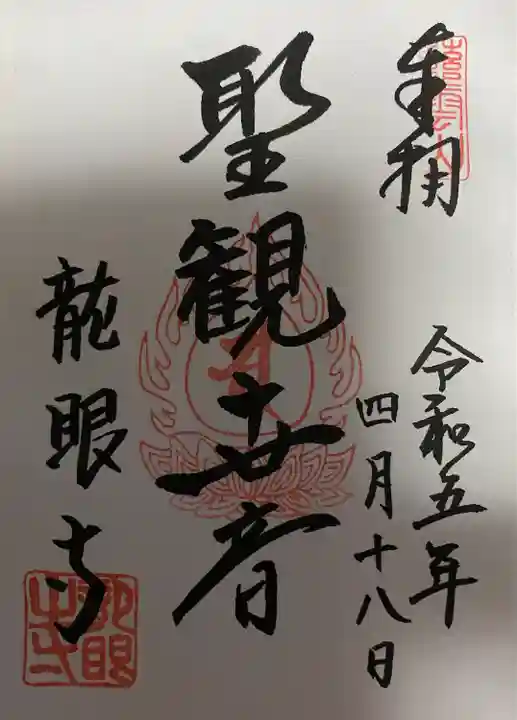 奉拝
令和五年
四月十八日
聖観世音
龍眼寺